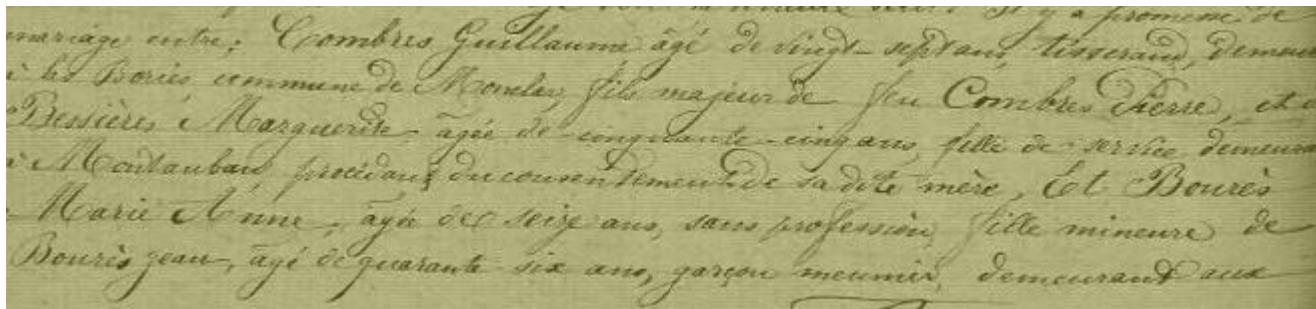 Il y a promesse de
mariage entre; Combres Guillaume âgé de vingt-sept ans, tisserand, demeura
à las Bories, commune de Monclar, fils majeur de feu Combres Pierre, et
Bessières Marguerite âgée de cinquante-cinq ans, fille de service, demeura
à Montauban, procédant du consentement de sa dite mère, Et Bourès
Marie Anne, agée de seize ans, sans profession, fille mineure de
Bourès Jean, agé de quarante six ans, garçon meunier, demeurant aux